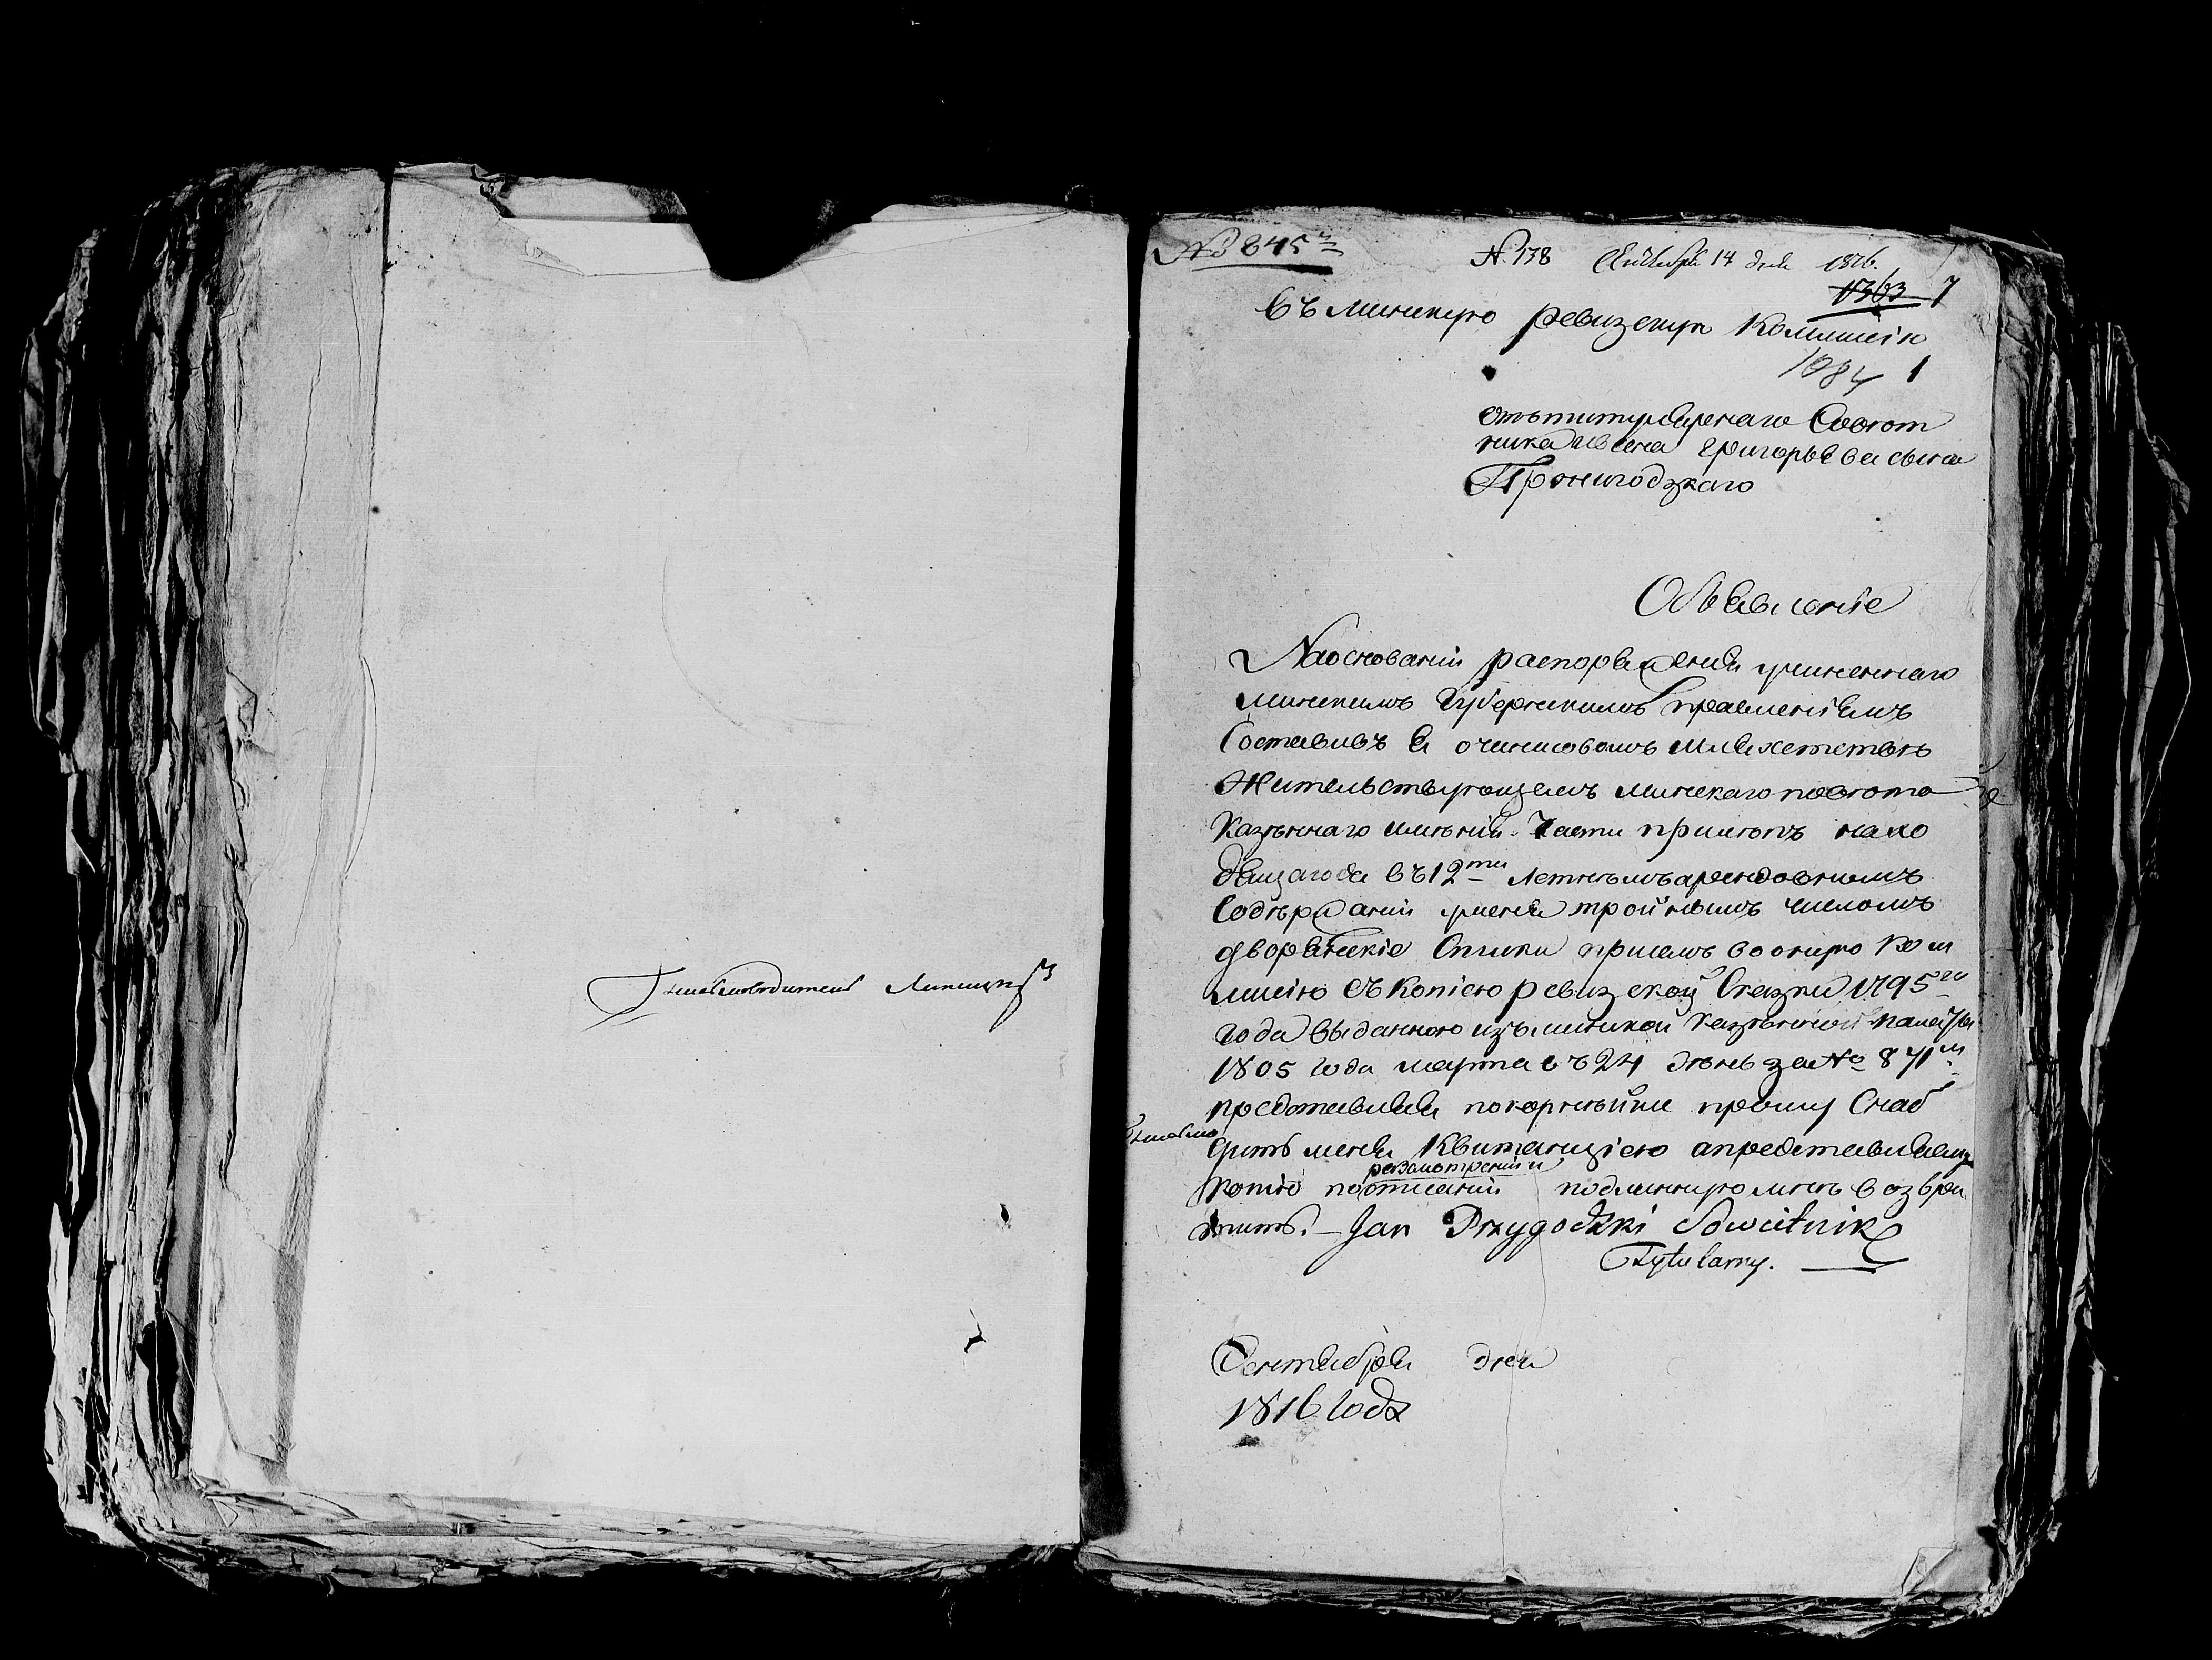 № 845
№ 138 Сентября 14 дня 1816.
1363 7
Въ минскую ревизскую Коммисію
1084 1
отъ титулярнаго Совѣт
ника Ивана Григорьева сына
Пржигодзкаго
Объявленіе
На основаніи распоряженія учиненнаго
минскимъ Губернскимъ правленіемъ
Составивъ я о чиншовомъ шляхетствѣ
Жительствующемъ минскаго повѣта
Казѣннаго имѣнія Части находя
дящагося въ 12ти Летнѣмъ арендовномъ
Содѣржаніи у меня тройнымъ числомъ
дворянскіе Списки при семъ во оную Ком
мисію съ копіею ревизской Сказки 1795го
года выданною изъ минской казѣнной палаты
1805 года марта въ 24 дѣнь за № 871м
представляя покорнѣйше прошу Снаб
дить меня Квитанціею а представляемую
разсмотреніи и
копію по отписаніи подлинную мнѣ возвра
тить. – Jan Przygodzki Sowietnik
Tytularny.
Сентября дня
1816 года